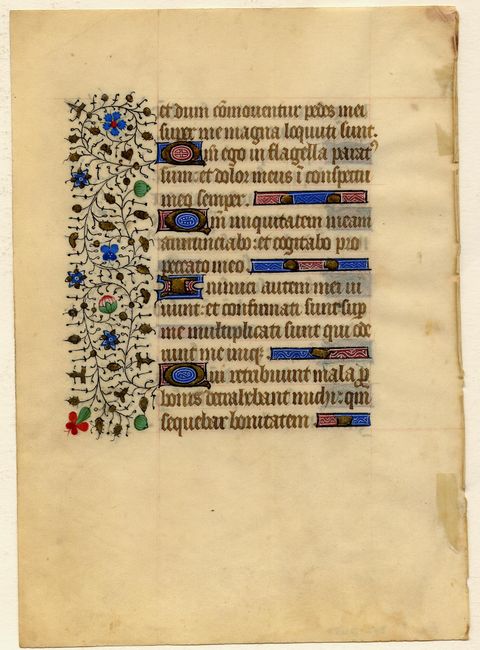 et dum cōmoventur pedes mei
super me magna loquuti sunt.
Qm̄ ego in flagella paratꝰ
sum: et dolor meus ī conspectu
meo semper.
Qm̄ iniquitatem meam
annunciabo: et cogitabo pro
peccato meo.
Inimici autem mei vi
vunt: et confirmati sunt sup
me multiplicati sunt qui ode
runt me iniq̄.
Qui retribuunt mala ꝓ
bonis detrahebant michi: qm̄
sequebar bonitatem.